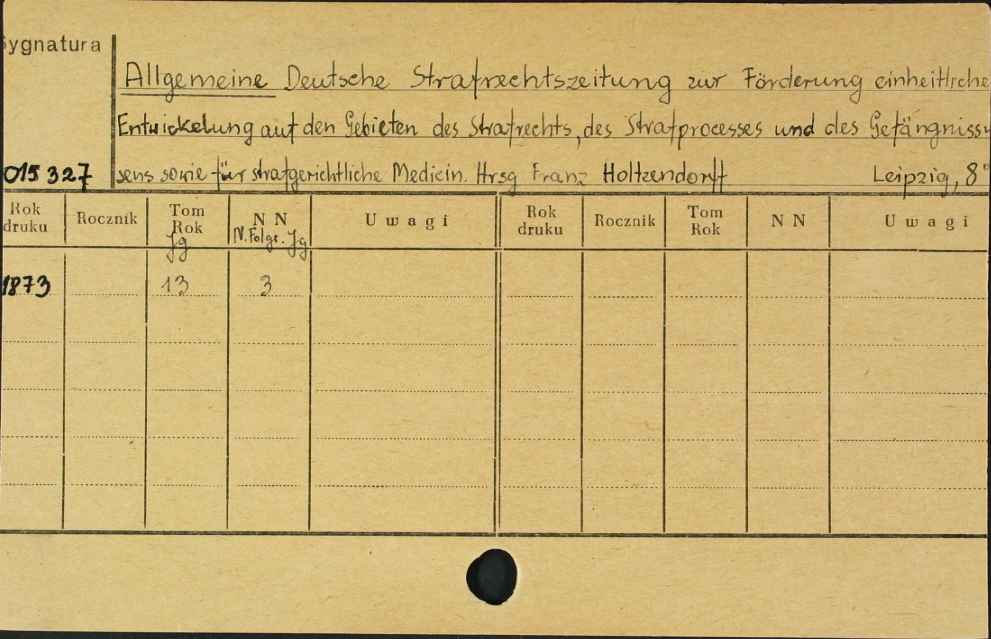 Sygnatura
Allgemeine Deutsche Strafrechtszeitung zur Förderung einheitliche
Entwickelung auf den Gebieten des Strafrechts, des Strafprocesses und des Gefängniss-
015327 sens sowie für strafgerichtliche Medicin. Hrsg Franz Holtzendorff Leipzig, 8°
Rok druku Rocznik Tom Rok Jg N N N. Folge. Jg Uwagi Rok druku Rocznik Tom Rok N N Uwagi
1873 13 3